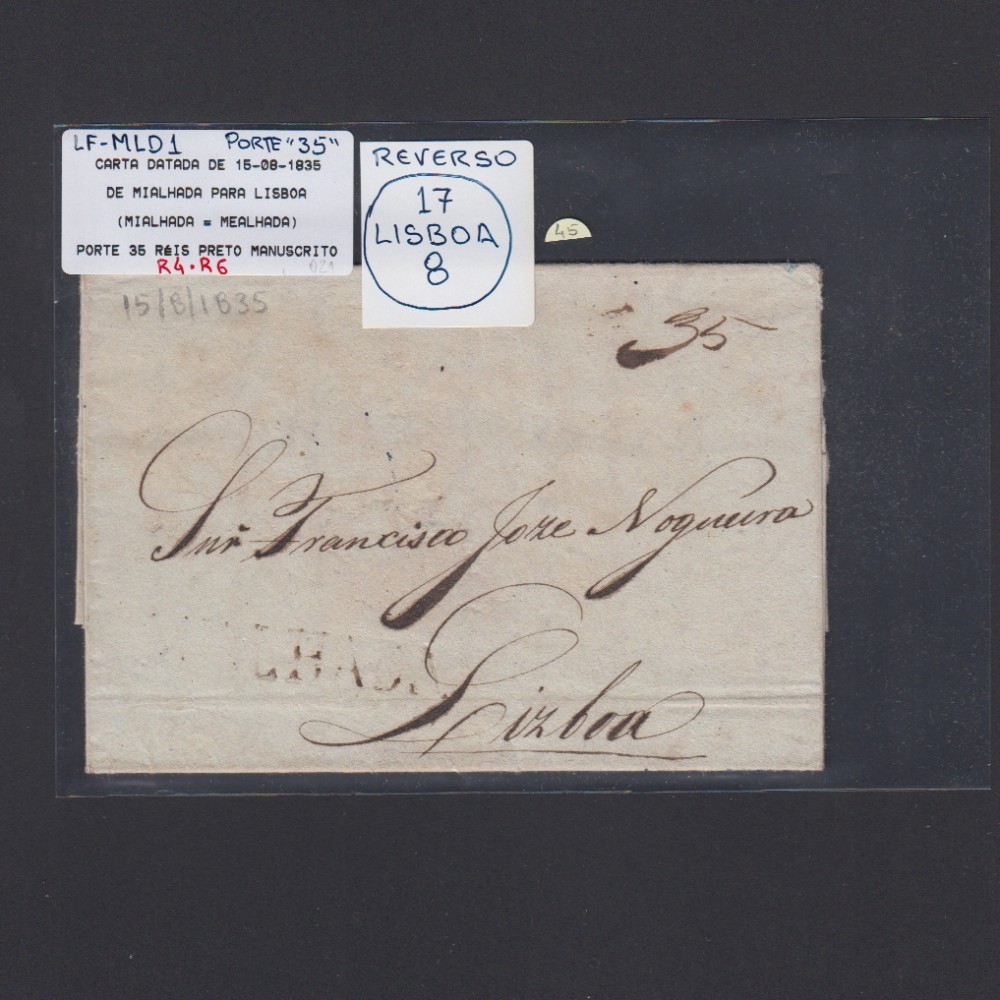 LF-MLD1 PORTE "35"
CARTA DATADA DE 15-08-1835
DE MIALHADA PARA LISBOA
(MIALHADA = MEALHADA)
PORTE 35 RÉIS PRETO MANUSCRITO
R4·R6
021
REVERSO
17
LISBOA
8
45
15/8/1835
35
Snr Francisco Joze Nogueira
Lizboa